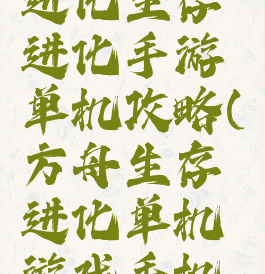 进化生存
进化手游
单机攻略(
方舟生存
进化单机
游戏手机